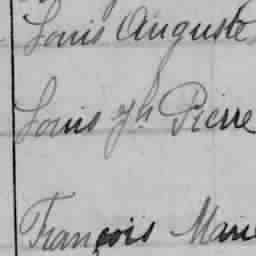 Louis Auguste
Louis Jh Pierre
François Marie